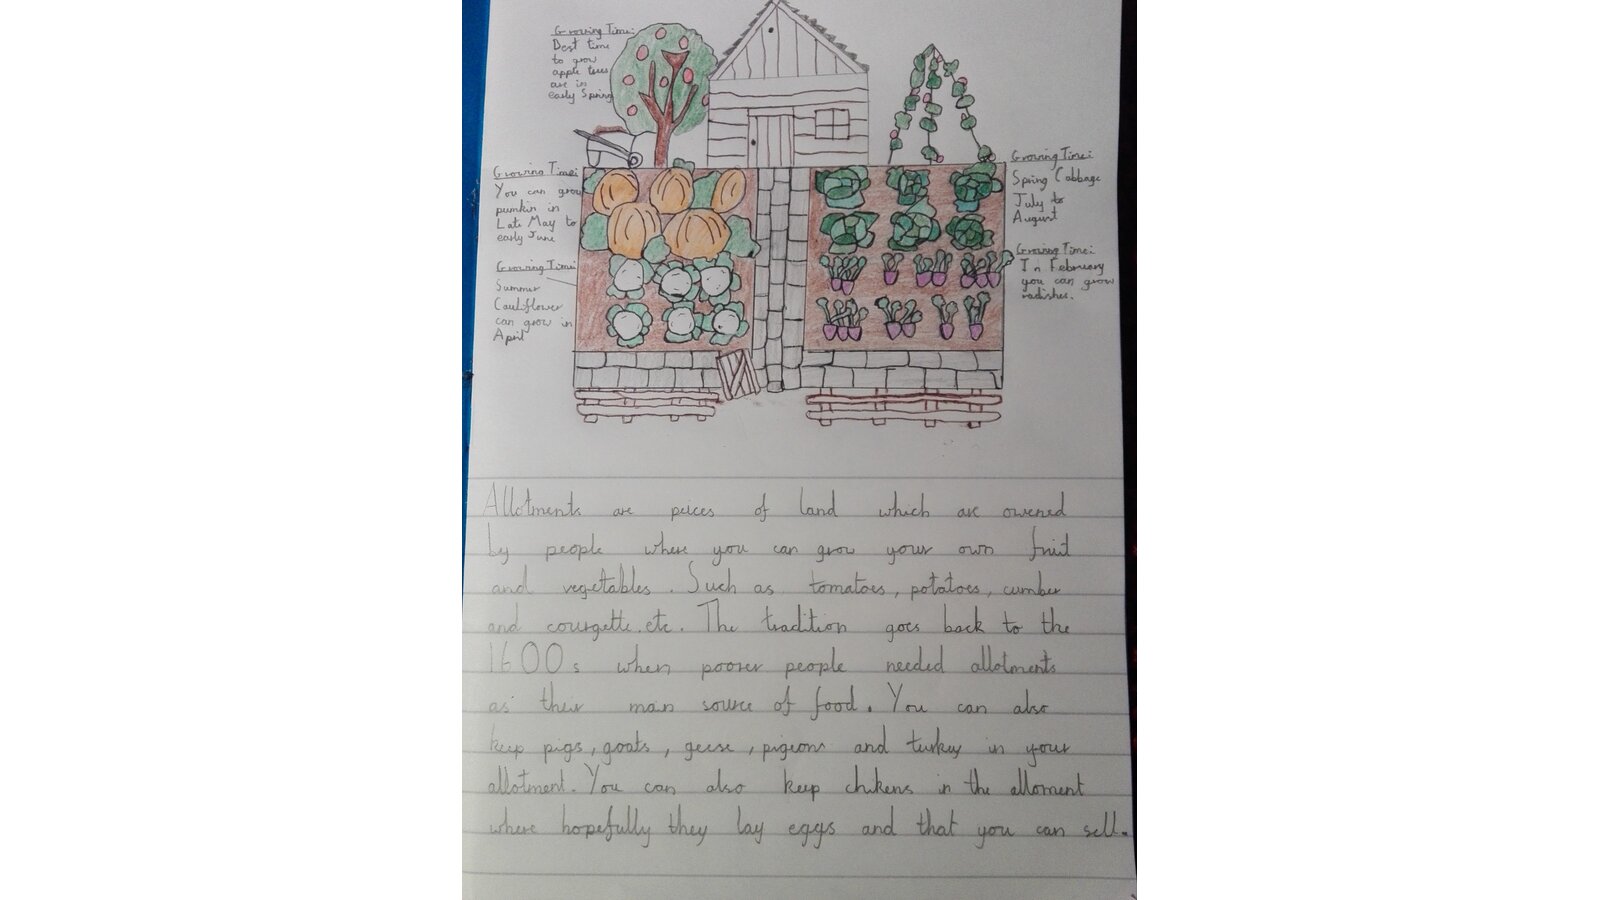 Growing Time:
Best time
to grow
apple trees
are in
early Spring
Growing Time:
You can grow
pumkin in
Late May to
early June
Growing Time:
Summer
Cauliflower
can grow in
April
Growing Time:
Spring Cabbage
July to
August
Growing Time:
In February
you can grow
radishes.
Allotments are peices of land which are owened
by people where you can grow your own fruit
and vegetables. Such as tomatoes, potatoes, cumber
and courgette.etc. The tradition goes back to the
1600s when poorer people needed allotments
as their man source of food. You can also
keep pigs, goats, geese, pigeons and turkey in your
allotment. You can also keep chikens in the alloment
where hopefully they lay eggs and that you can sell.